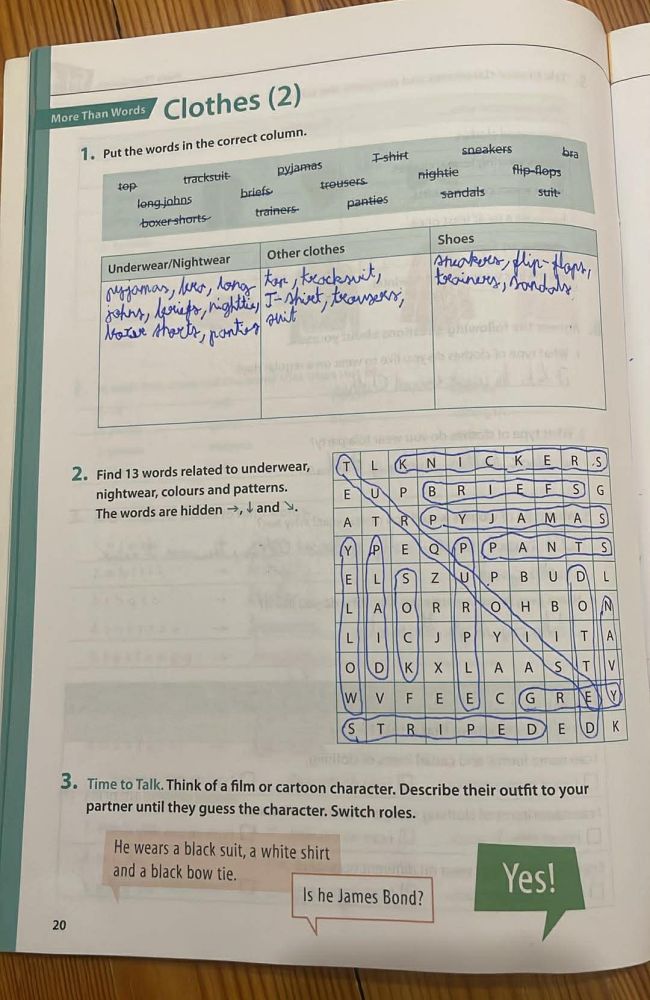 More Than Words
Clothes (2)
1. Put the words in the correct column.
top tracksuit pyjamas T-shirt sneakers bra
long johns briefs trousers nightie flip-flops
boxer shorts trainers panties sandals suit
Underwear/Nightwear
pyjamas, bra, long
johns, briefs, nightie,
boxer shorts, panties
Other clothes
top, tracksuit,
T-shirt, trousers,
suit
Shoes
sneakers, flip-flops,
trainers, sandals
2. Find 13 words related to underwear,
nightwear, colours and patterns.
The words are hidden →, ↓ and ↘.
T L K N I C K E R S
E U P B R I E F S G
A T R P Y J A M A S
Y P E Q P P A N T S
E L S Z U P B U D L
L A O R R O H B O N
L I C J P Y I I T A
O D K X L A A S T V
W V F E E C G R E Y
S T R I P E D E D K
3. Time to Talk. Think of a film or cartoon character. Describe their outfit to your
partner until they guess the character. Switch roles.
He wears a black suit, a white shirt
and a black bow tie.
Is he James Bond?
Yes!
20